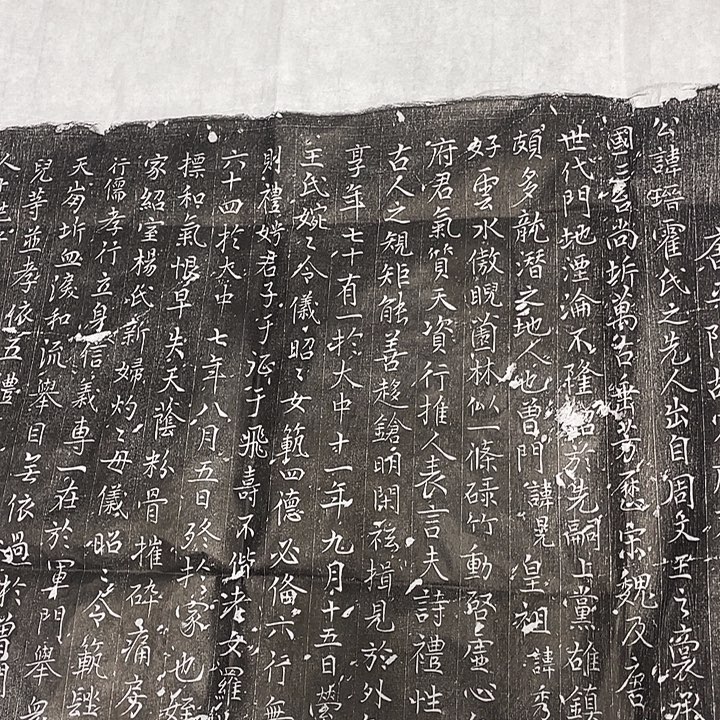 唐故
公諱瑨霍氏之先人出自周文王之裔承
國三台尚坼萬古垂芳歷宋魏及唐
世代門地湮淪不隆紹於先嗣上黨雄鎮
頗多龍潛之地人也曾門諱晃皇祖諱秀
好雲水傲睨園林似一條碌竹動堅虛心
府君氣質天資行推人表言夫詩禮性
古人之規矩能善趍鎗明閑揖見於外
享年七十有一於大中十一年九月十五日塋
王氏婉〻令儀昭〻女範四德必備六行無
則禮娉君子于征于飛壽不偕老女羅
六十四於大中七年八月五日終於家也姪
標和氣恨早失天蔭粉骨摧碎痛
家紹室楊氏新婦灼〻母儀昭〻令範
行儒孝行立身信義專一在於軍門舉
天崩坼血淚和流舉目無依過於曾門
兒等並孝依五禮